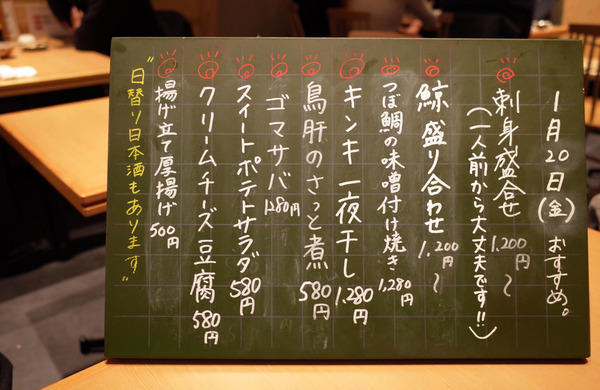 1月20日(金)おすすめ。
刺身盛合せ 1,200円〜
(一人前から大丈夫です!!)
鯨盛り合わせ 1,200円〜
つぼ鯛の味噌付け焼き 1,280円
キンキ一夜干し 1,280円
鳥肝のさっと煮 580円
ゴマサバ 1280円
スイートポテトサラダ 580円
クリームチーズ豆腐 580円
揚げ立て厚揚げ 500円
"日替り日本酒もあります"